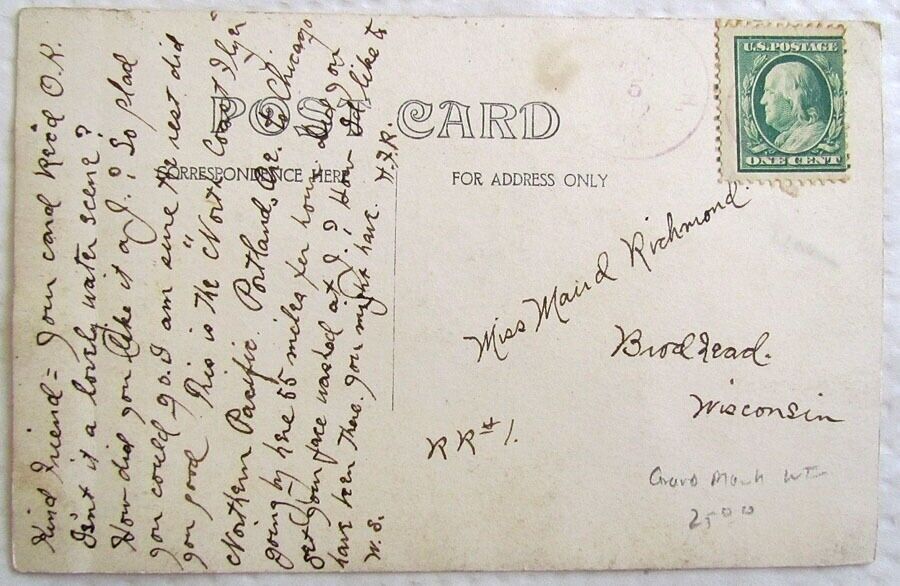 POST CARD
CORRESPONDENCE HERE
FOR ADDRESS ONLY
U.S. POSTAGE
ONE CENT
Kind Friend = Your card Rec'd O.K.
Isn't it a lovely water scene?
How did you like it at J.? So glad
you could go. I am sure the rest did
you good. This is the "North Coast Flyer"
Northern Pacific. Portland, Ore. to Chicago
going by here 55 miles per hour. Did you
get your face washed at J.? How I'd like to
have been there. you might have.
W.S. H.F.R.
Miss Maud Richmond
Brodhead.
Wisconsin
RR#1.
Marsh WI
2500